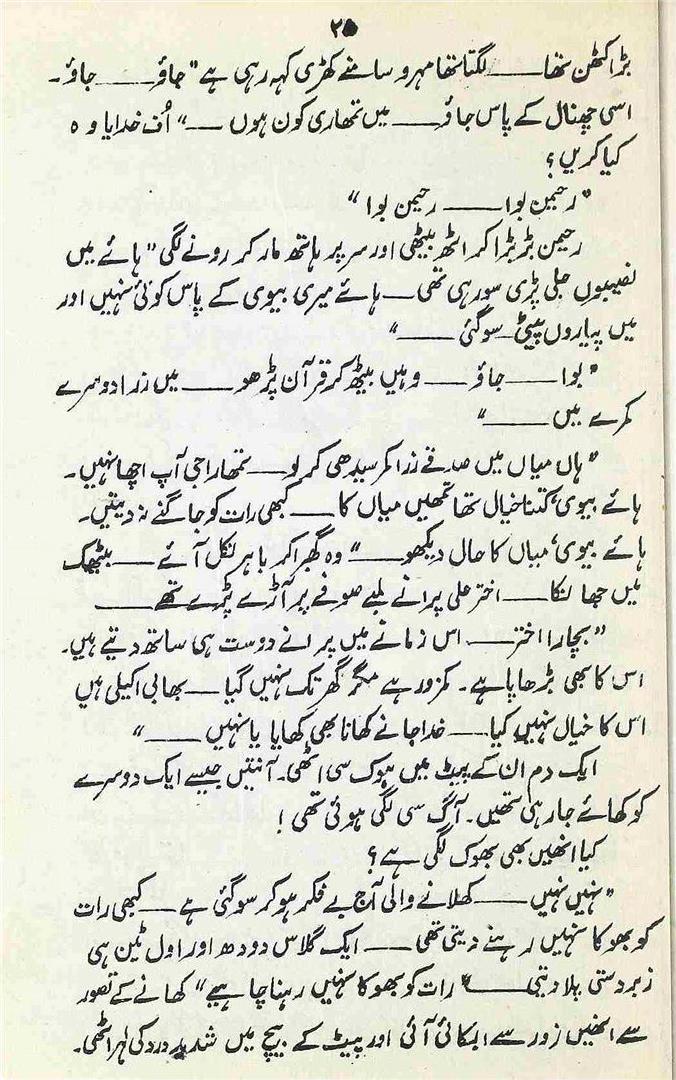 ۲۵
بڑا کٹھن تھا ـــــ لگتا تھا مہرو سامنے کھڑی کہہ رہی ہے "جاؤ ـــــ جاؤ۔
اسی چھنال کے پاس جاؤ ـــــ میں تمھاری کون ہوں ـــــ" اُف خدایا وہ
کیا کریں؟
"رحیمن بوا ـــــ رحیمن بوا"
رحیمن ہڑبڑا کر اٹھ بیٹھی اور سر پر ہاتھ مار کر رونے لگی "ہائے میں
نصیبوں جلی پڑی سو رہی تھی ـــــ ہائے میری بیوی کے پاس کوئی نہیں اور
میں پیاروں پیٹی سو گئی ـــــ"
"بوا ـــــ جاؤ ـــــ وہیں بیٹھ کر قرآن پڑھو ـــــ میں زرا دوسرے
کمرے میں ـــــ"
"ہاں میاں میں صدقے زرا کمر سیدھی کر لو ـــــ تمھارا جی آپ اچھا نہیں۔
ہائے بیوی، کتنا خیال تھا تمھیں میاں کا ـــــ کبھی رات کو جاگنے نہ دیتیں۔
ہائے بیوی، میاں کا حال دیکھو ـــــ" وہ گھبرا کر باہر نکل آئے ـــــ بیٹھک
میں جھانکا ـــــ اختر علی پرانے لمبے صوفے پر آڑے پڑے تھے ـــــ
"بچارا اختر ـــــ اس زمانے میں پرانے دوست ہی ساتھ دیتے ہیں۔
اس کا بھی بڑھاپا ہے۔ کمزور ہے مگر گھر تک نہیں گیا ـــــ بھابی اکیلی ہیں
اس کا خیال نہیں کیا ـــــ خدا جانے کھانا بھی کھایا یا نہیں ـــــ"
ایک دم ان کے پیٹ میں ہوک سی اٹھی۔ آنتیں جیسے ایک دوسرے
کو کھائے جا رہی تھیں۔ آگ سی لگی ہوئی تھی!
کیا انھیں بھی بھوک لگی ہے؟
"نہیں نہیں ـــــ کھلانے والی آج بے فکر ہو کر سو گئی ہے ـــــ کبھی رات
کو بھوکا نہیں رہنے دیتی تھی ـــــ ایک گلاس دودھ اور اول ٹین ہی
زبردستی پلا دیتی ـــــ "رات کو بھوکا نہیں رہنا چاہیے" کھانے کے تصور
سے انھیں زور سے ابکائی آئی اور پیٹ کے بیچ میں شدید درد کی لہر اٹھی۔